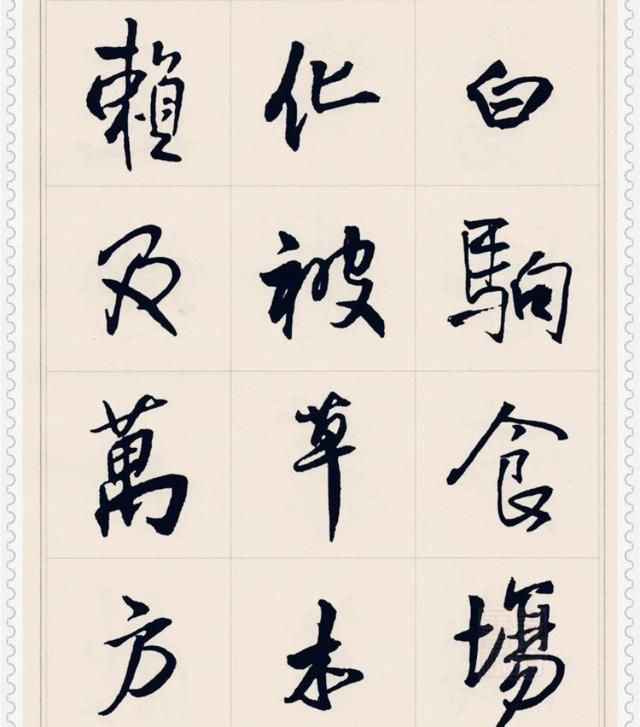 白駒食場
化被草木
賴及萬方